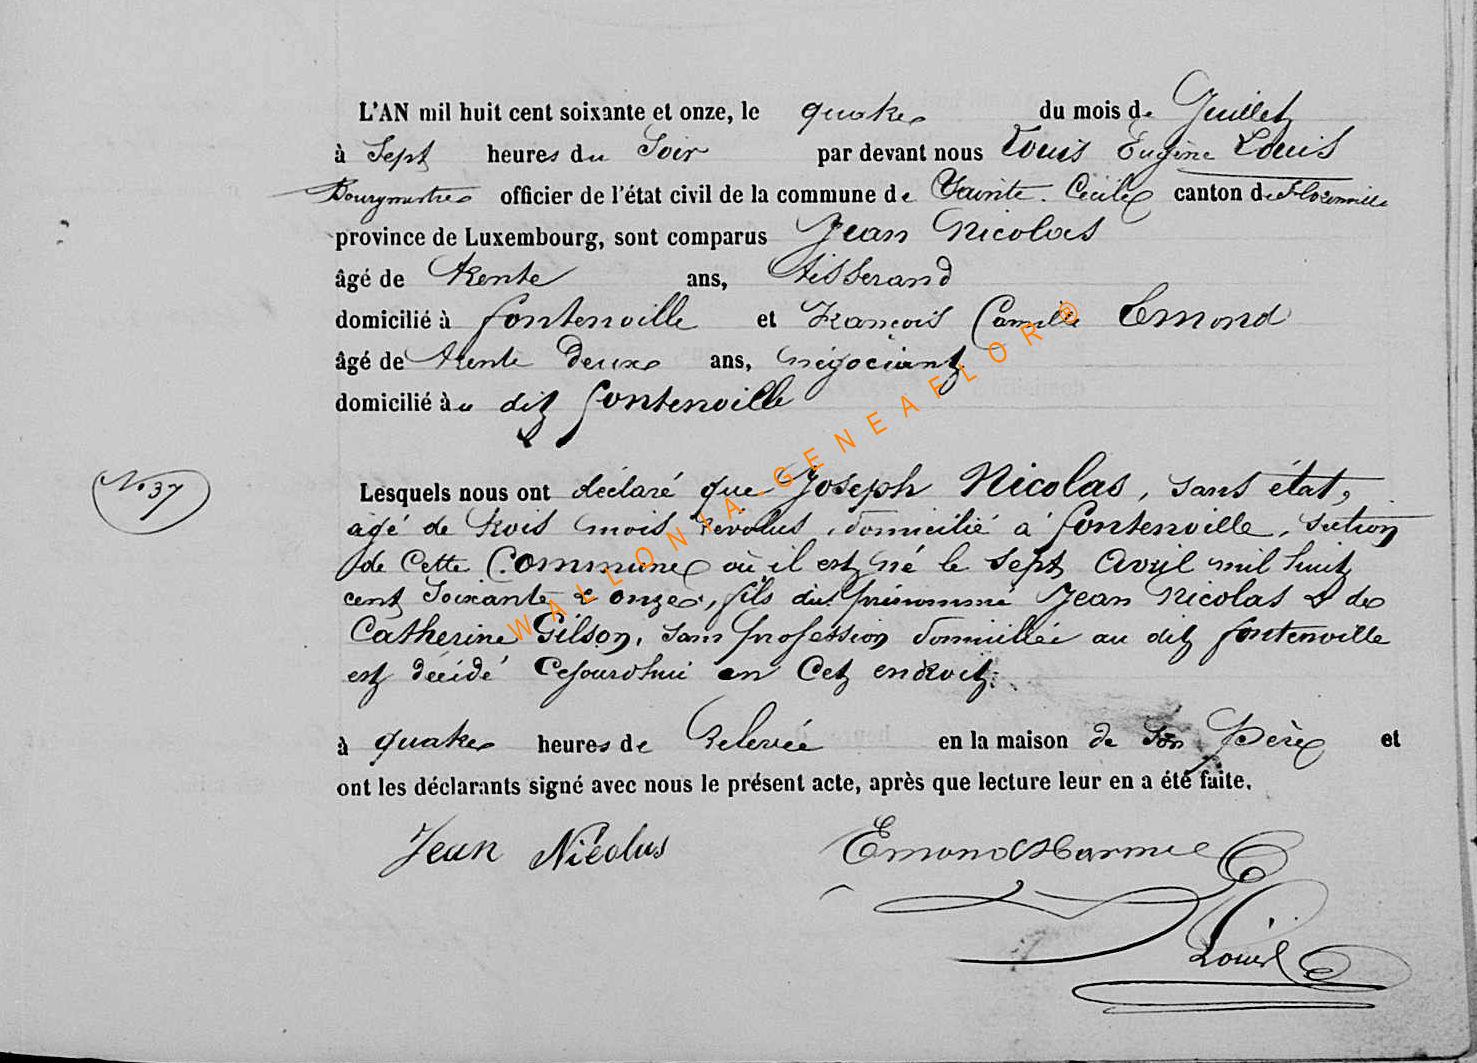 L'AN mil huit cent soixante et onze, le quatre du mois de Juillet
à Sept heures du Soir par devant nous Louis Eugène Louis
Bourgmestre officier de l'état civil de la commune de Sainte-Cécile canton de Florenville
province de Luxembourg, sont comparus Jean Nicolas
âgé de trente ans, tisserand
domicilié à fontenoille et François Camille Emond
âgé de trente deux ans, négociant
domicilié à u dit fontenoille
N° 37
Lesquels nous ont déclaré que Joseph Nicolas, sans état,
âgé de trois mois révolus, domicilié à fontenoille, section
de cette Commune où il est né le sept Avril mil huit
cent soixante & onze, fils du prénommé Jean Nicolas & de
Catherine Gilson, sans profession domiciliée au dit fontenoille
est décédé cejourd'hui en cet endroit
à quatre heures de relevée en la maison de son Père et
ont les déclarants signé avec nous le présent acte, après que lecture leur en a été faite.
Jean Nicolas Emond
Louis
WALLONIA-GENEAFLOR®